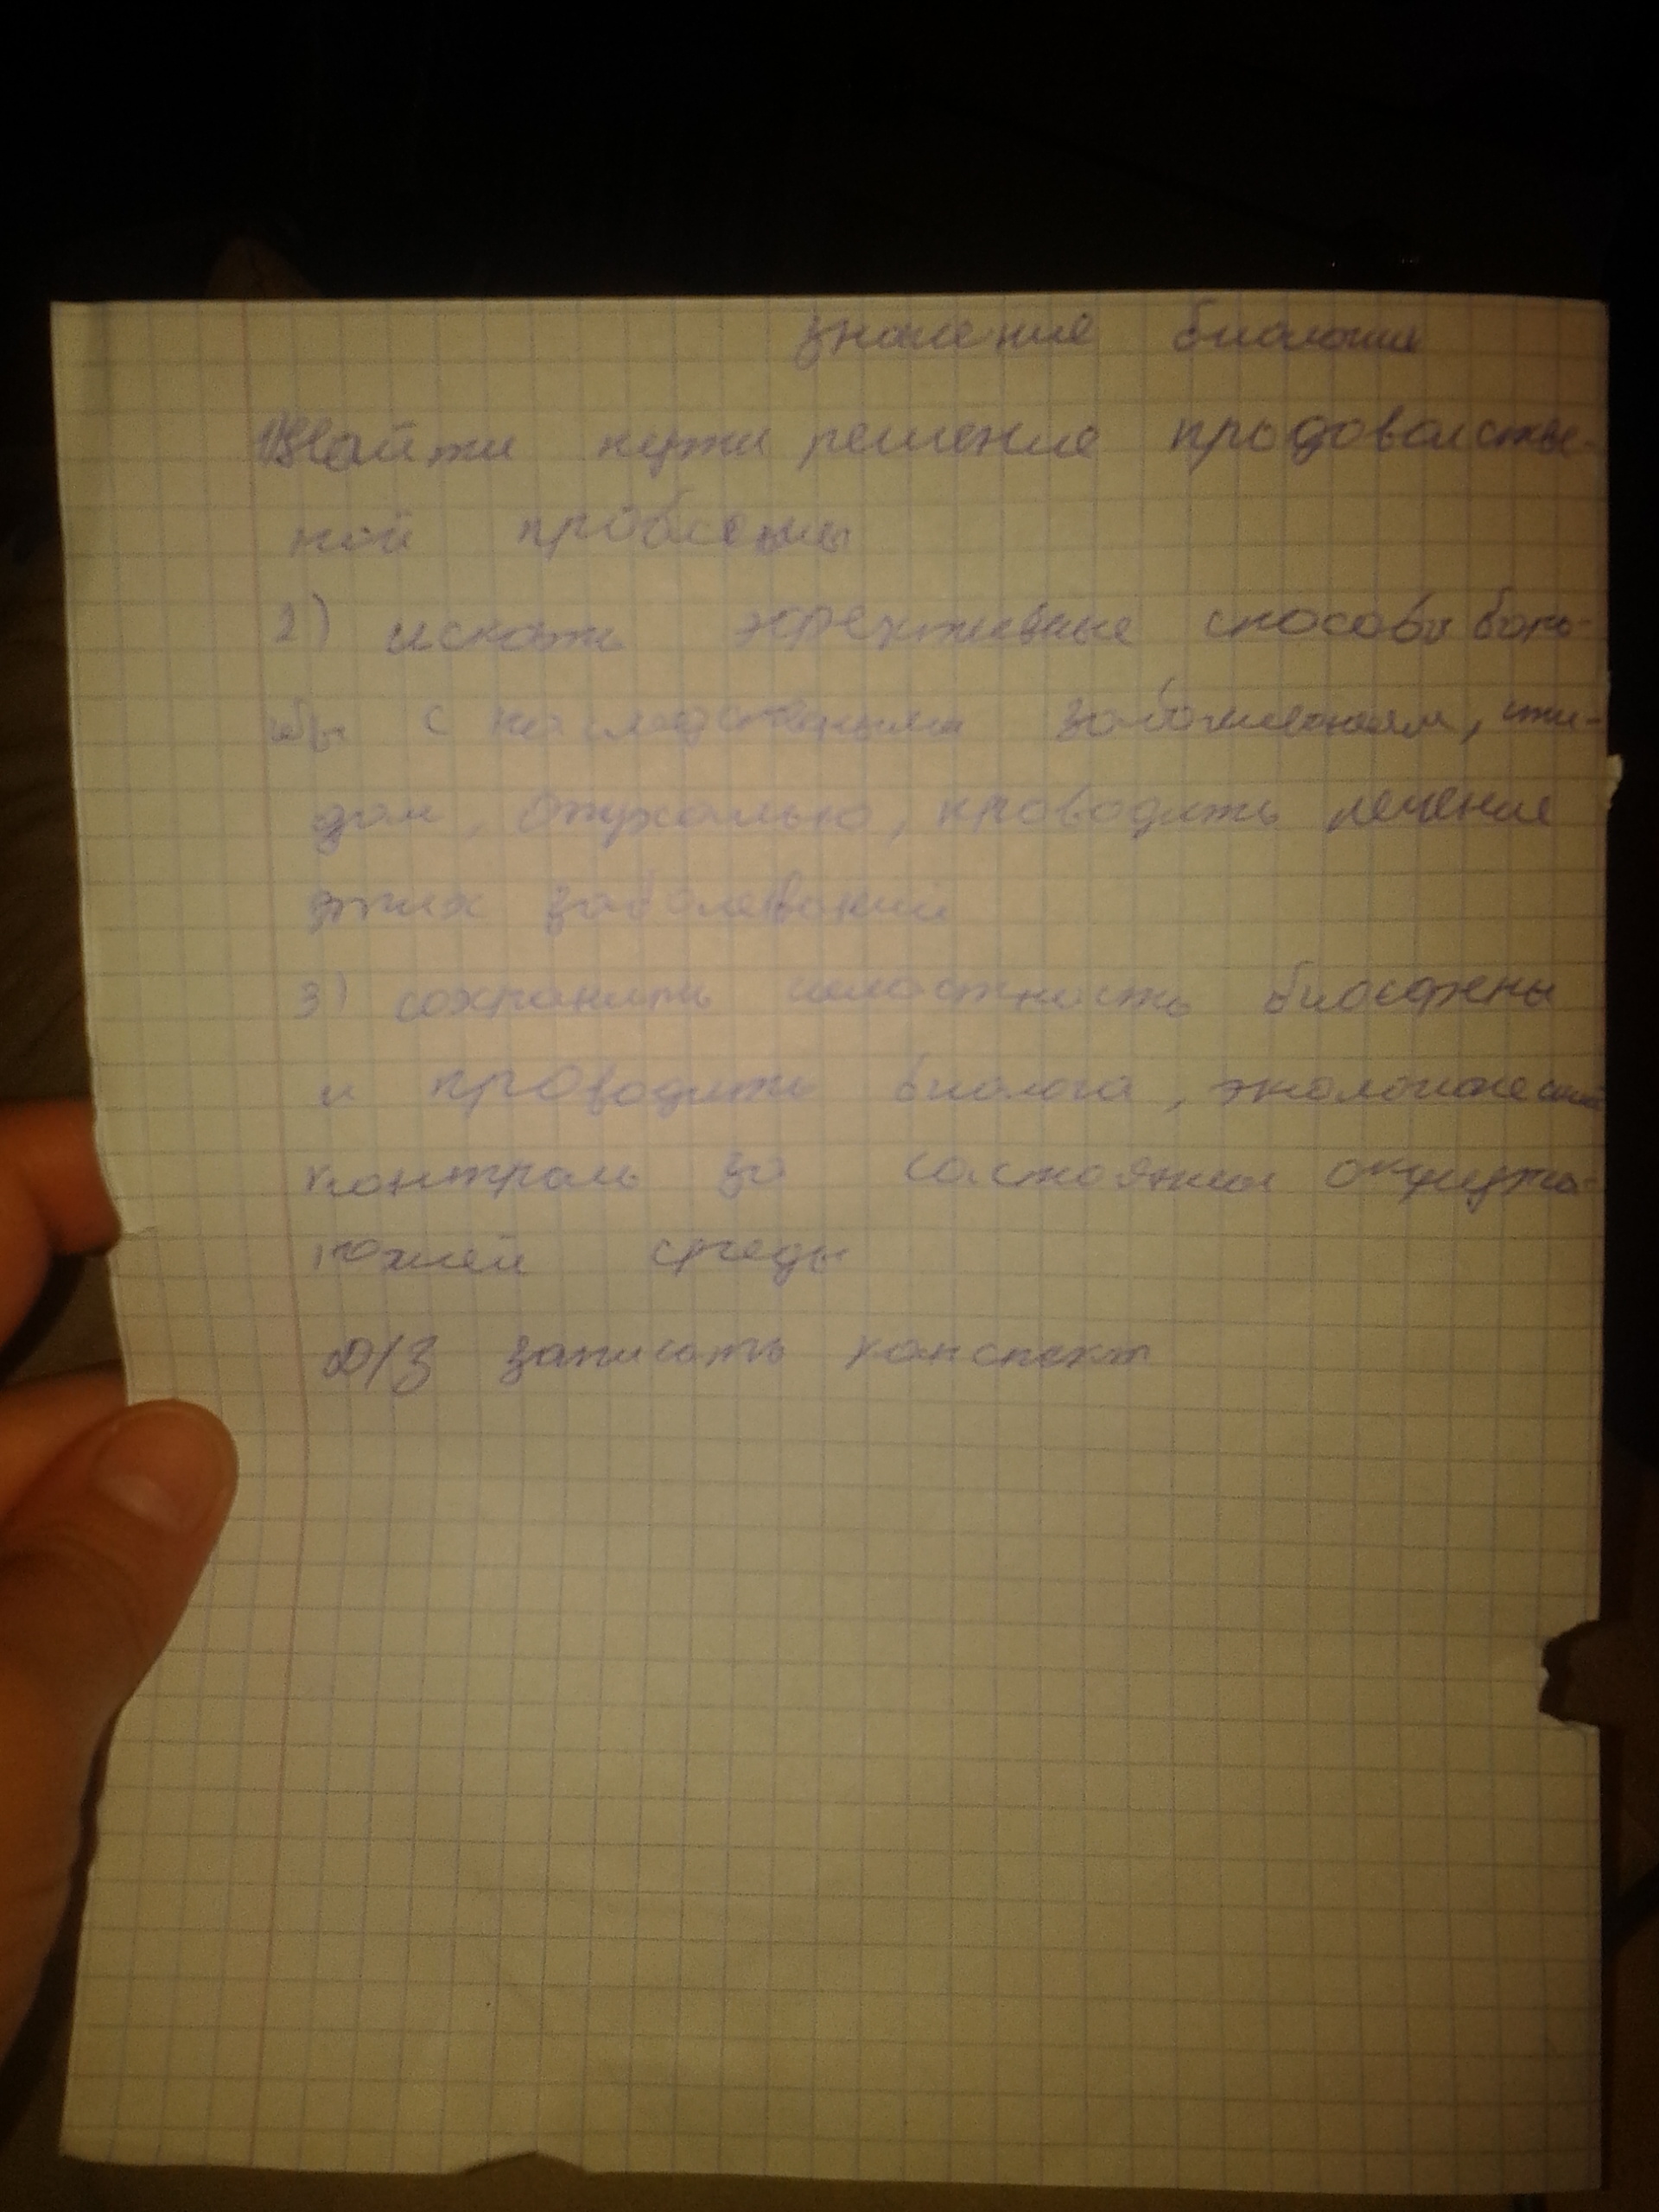 значение биологии
1) Найти пути решение продоволстве-
ной проблемы
2) искать эфективные способы боль-
бы с наследственыма заболеваниям,
дом, опухолью, проводить лечение
этих заболеваний
3) сохранить целостность биосферы
и проводить биолога, экологический
контроль за состоянии окружа-
ющей среды
Д/З записать конспект